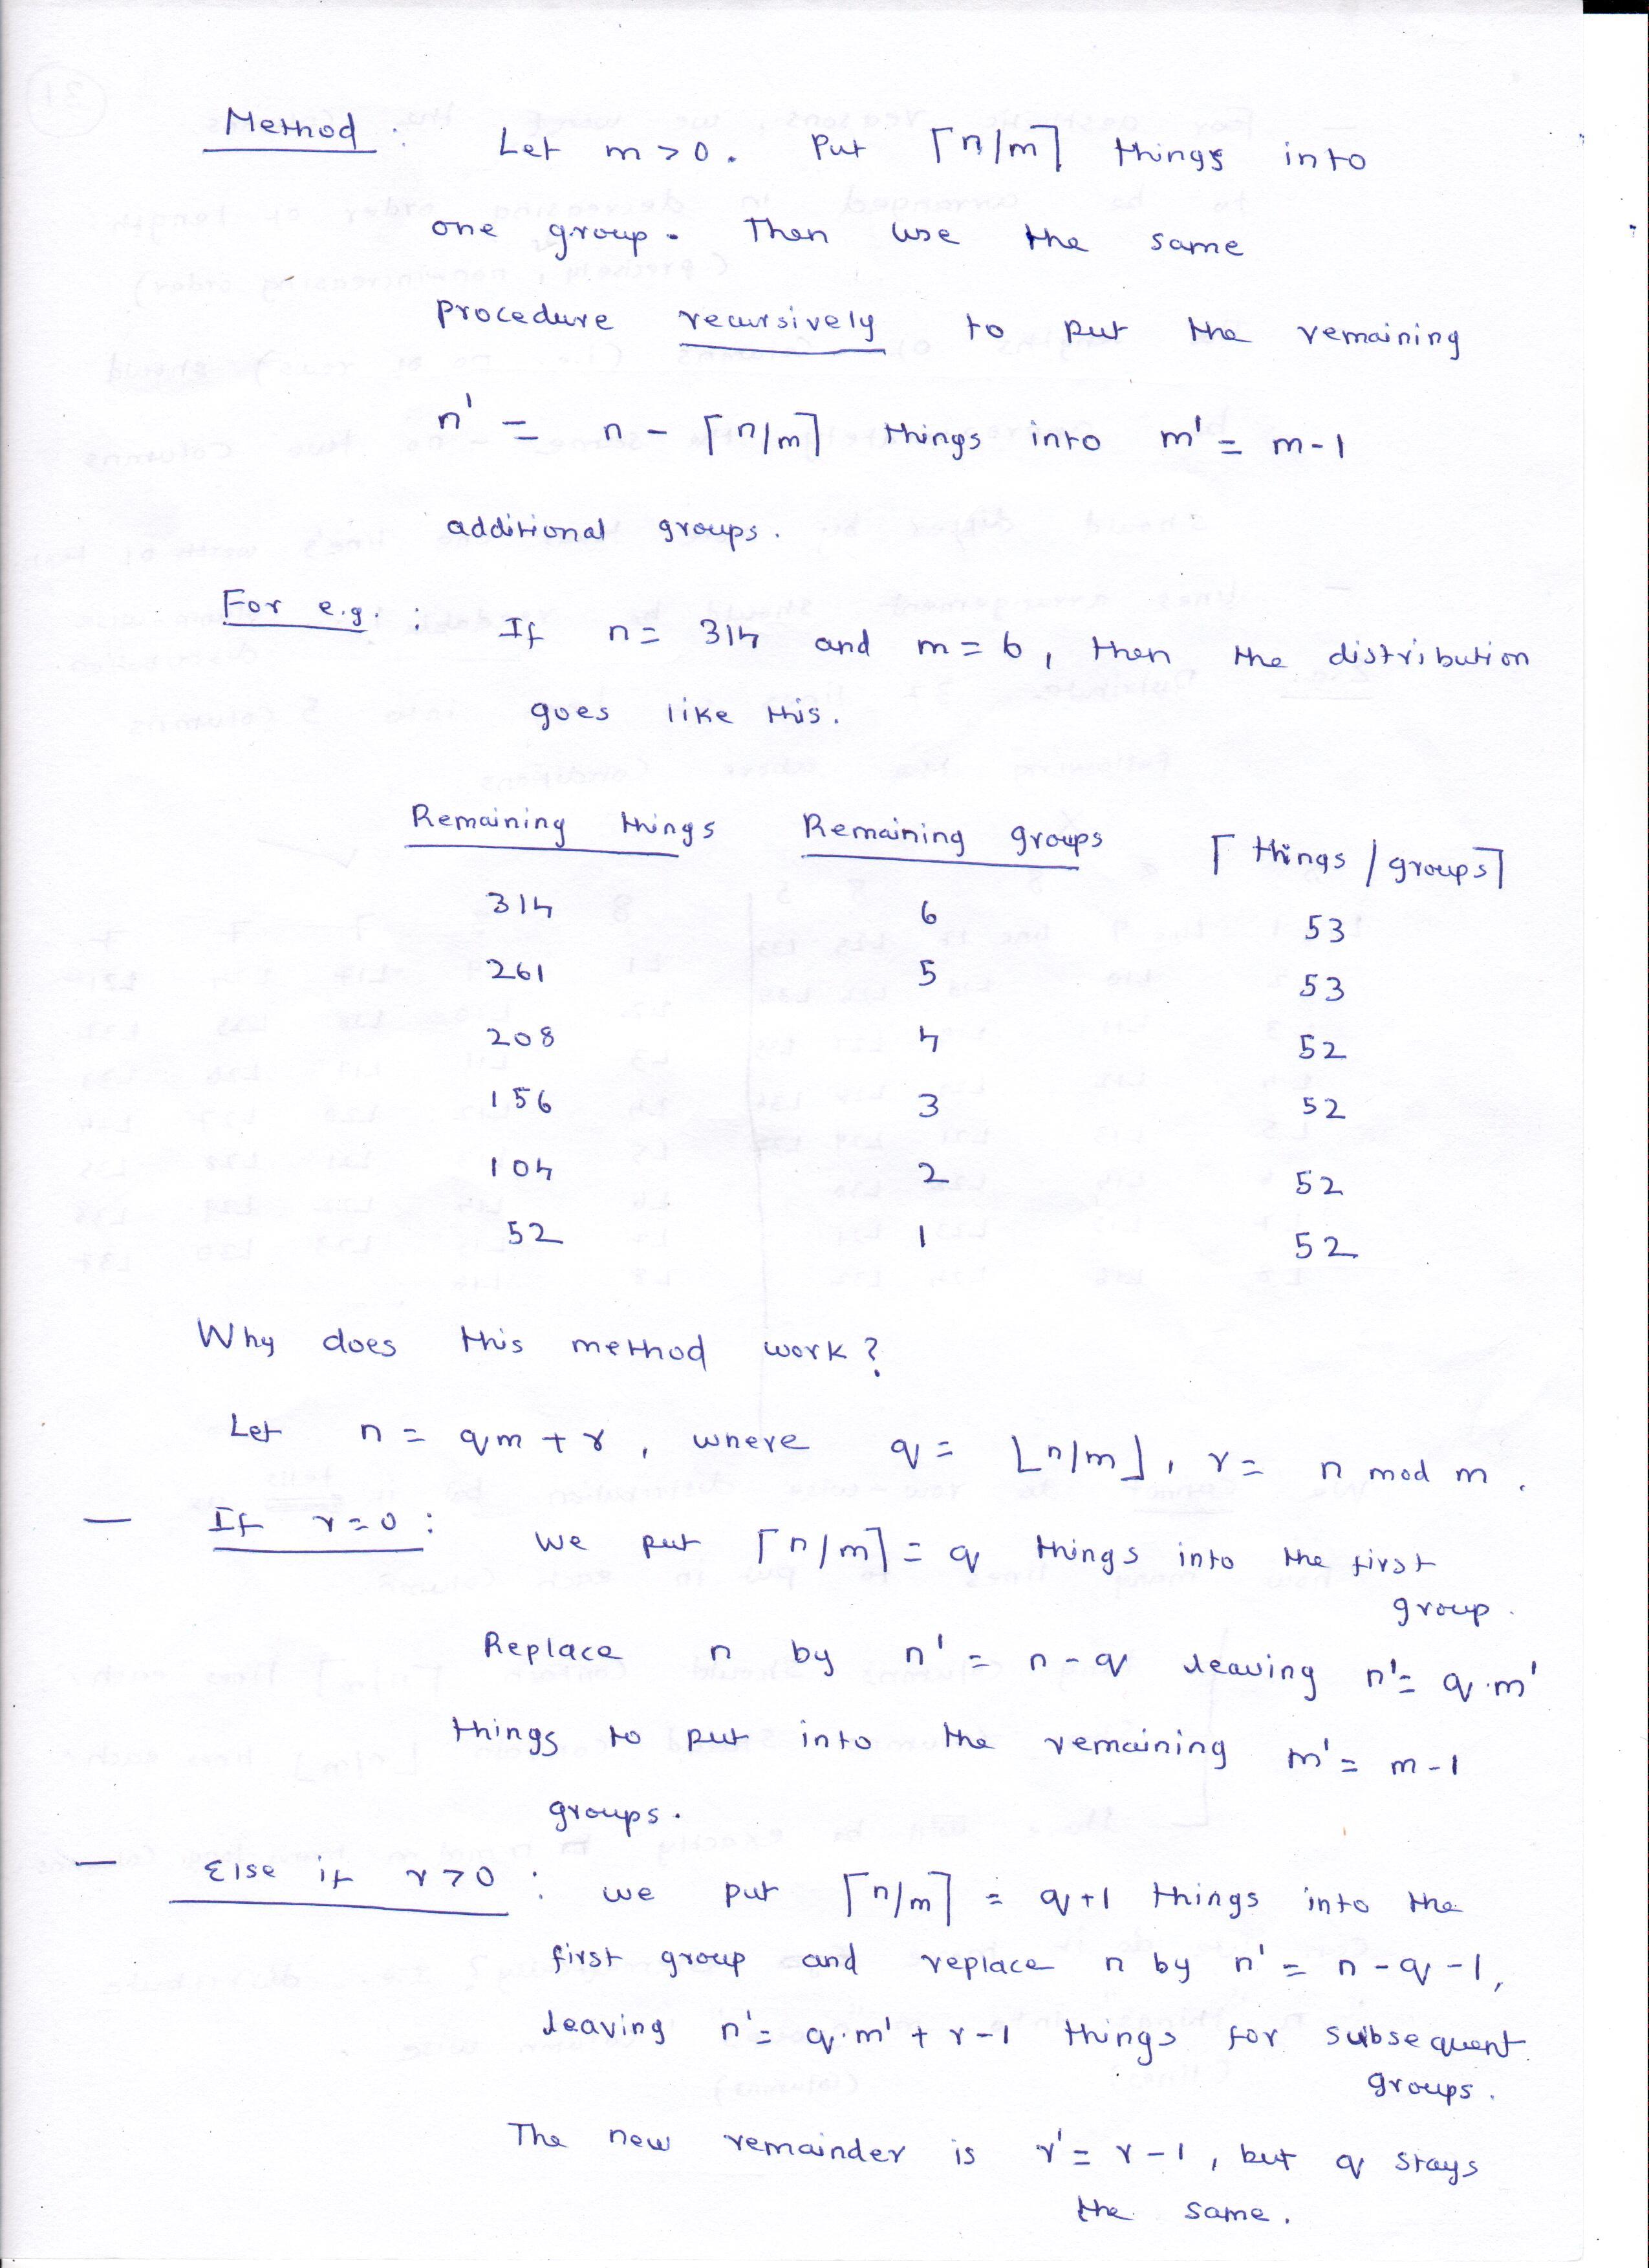 Method : Let m > 0. Put ⌈n/m⌉ things into
one group. Then use the same
procedure recursively to put the remaining
n' = n - ⌈n/m⌉ things into m' = m-1
additional groups.
For e.g. : If n = 314 and m = 6, then the distribution
goes like this.
Remaining things Remaining groups ⌈things/groups⌉
314 6 53
261 5 53
208 4 52
156 3 52
104 2 52
52 1 52
Why does this method work?
Let n = qm + r, where q = ⌊n/m⌋, r = n mod m.
— If r = 0 : we put ⌈n/m⌉ = q things into the first
group.
Replace n by n' = n - q leaving n' = q.m'
things to put into the remaining m' = m-1
groups.
— Else if r > 0 : we put ⌈n/m⌉ = q+1 things into the
first group and replace n by n' = n - q - 1,
leaving n' = q.m' + r-1 things for subsequent
groups.
The new remainder is r' = r-1, but q stays
the same.